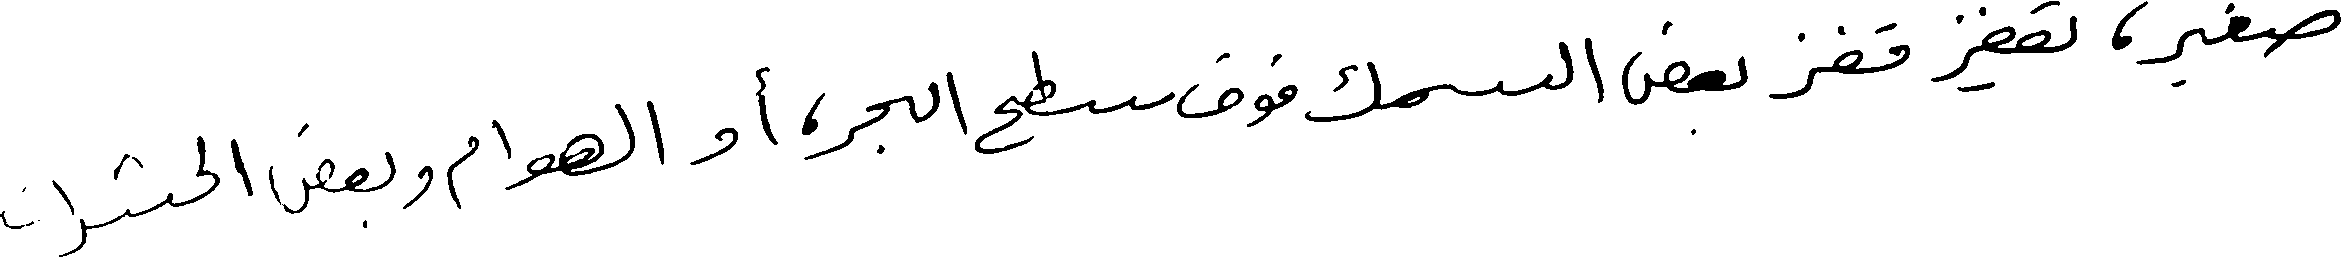 صغير، تقفز قفز بعض السمك فوق سطح البحر، أو الهوام وبعض الحشرات